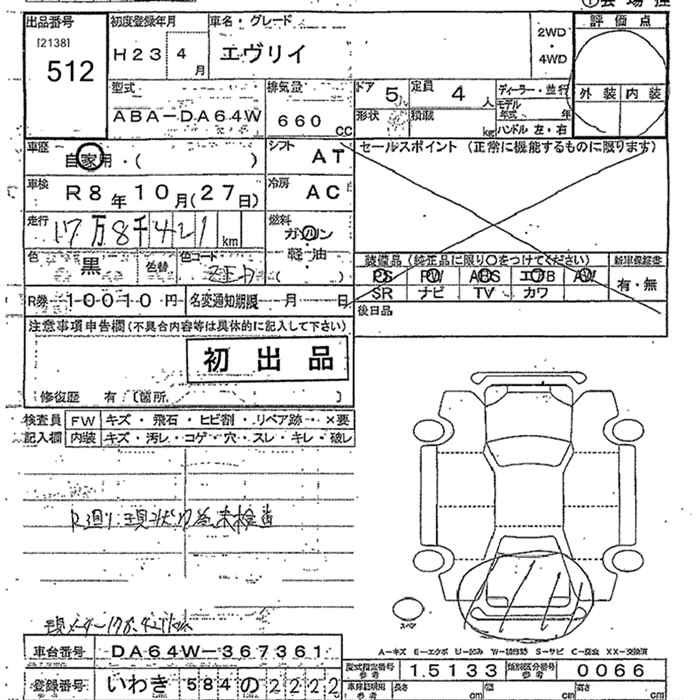 出品番号
[2138]
512
初度登録年月
H23 4月
車名・グレード
エヴリイ
2WD
・
4WD
評価点
外装 内装
型式
ABA-DA64W
排気量
660 cc
ドア 5
定員 4 人
形状
積載 kg
ディーラー・並行
モデル
年式 年
ハンドル 左・右
車歴
自家用・( )
シフト
AT
セールスポイント (正常に機能するものに限ります)
車検
R8年10月(27日)
冷房
AC
走行
17万8千421km
燃料
ガソリン
軽・油
( )
色
黒
色替
色コード
装備品 (純正品に限り○をつけてください)
PS PW ABS エアB AW
SR ナビ TV カワ
新車保証書
有・無
R券 10010円
名変通知期限 月 日
後日品
注意事項申告欄(不具合内容等は具体的に記入して下さい)
初出品
修復歴 有 〔箇所 〕
検査員 FW キズ・飛石・ヒビ割・リペア跡・×要
記入欄 内装 キズ・汚レ・コゲ・穴・スレ・キレ・破レ
スペア
A-キズ E-エクボ U-凹み W-補修跡 S-サビ C-腐食 XX-交換済
車台番号 DA64W-367361
登録番号 いわき 584 の 2222
型式指定番号
参考
15133
類別区分番号
参考
0066
車検証記載
参考
長さ cm 幅 cm 高さ cm